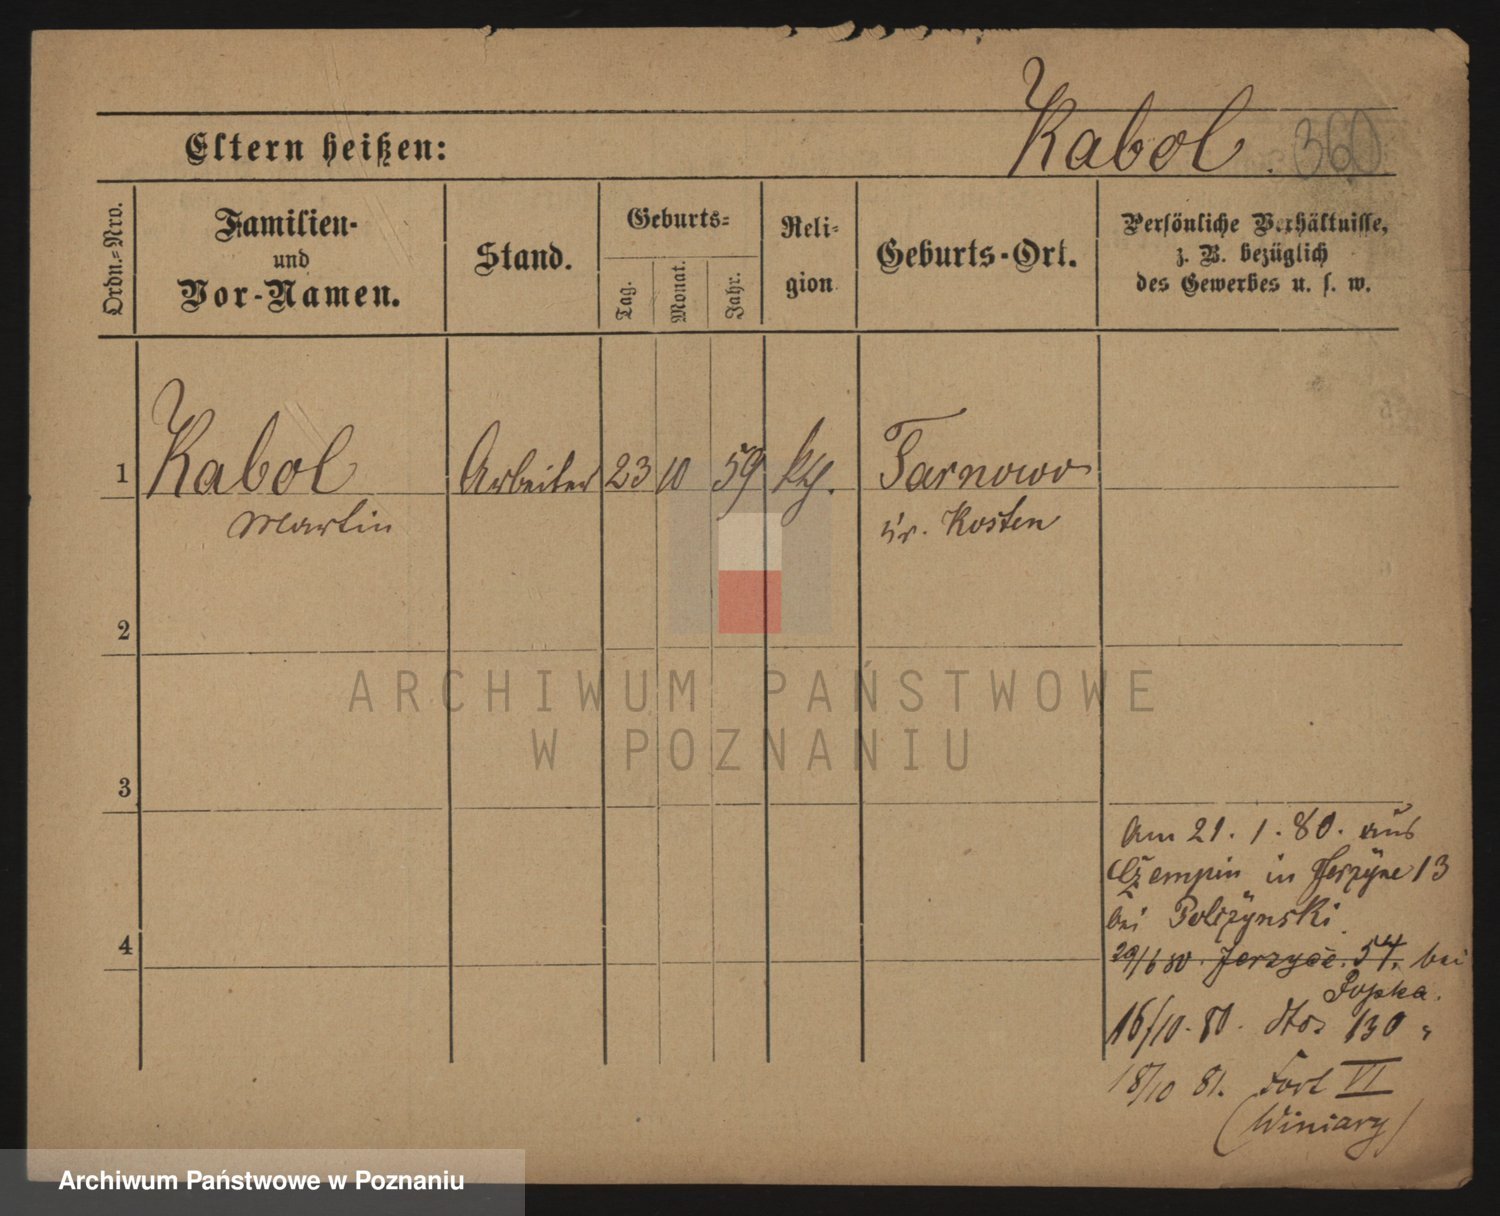 Kabol. 360
Eltern heißen:
Ordn.=Nro.
Familien-
und
Vor-Namen.
Stand.
Geburts=
Tag.
Monat.
Jahr.
Reli=
gion
Geburts-Ort.
Persönliche Verhältnisse,
z. B. bezüglich
des Gewerbes u. s. w.
1 Kabol Arbeiter 23 10 59 kth. Tarnowo
Martin
Kr. Kosten
2
ARCHIWUM PAŃSTWOWE
W POZNANIU
3
Am 21. 1. 80. aus
Czempin in Jerzyce 13
bei
4
29/6 80. Jerzyce. 54. bei
16/10. 80. dto 130 "
18/10 81. Fort VI
(Winiary)
Archiwum Państwowe w Poznaniu